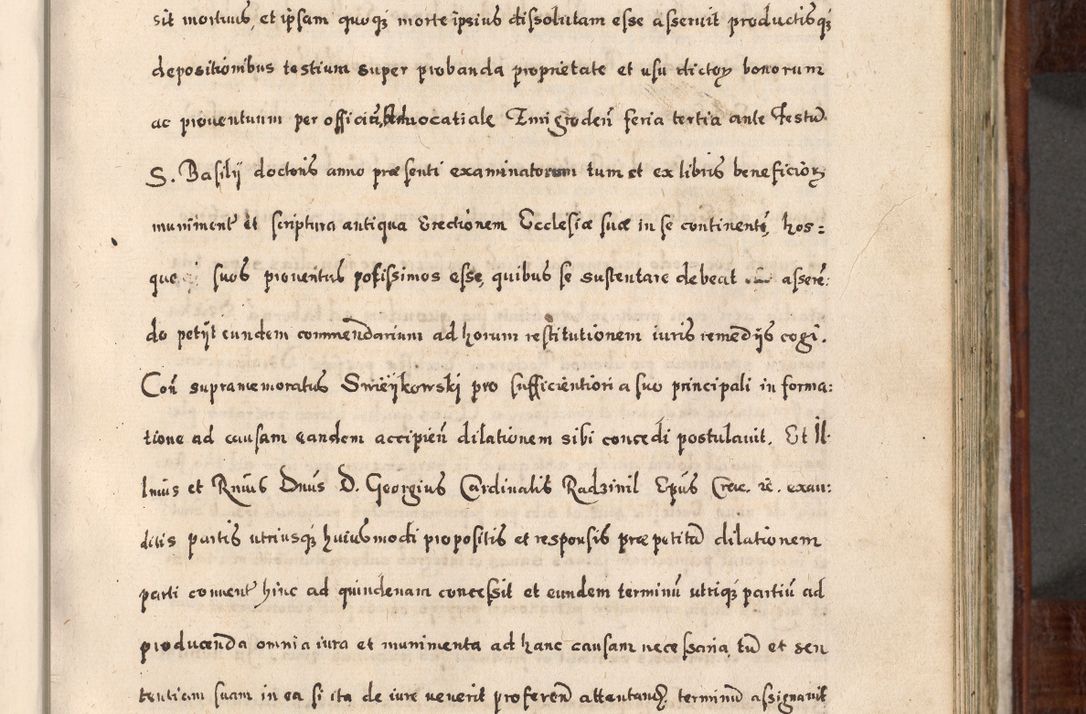 sit mortuus, et ipsam quoqꝫ morte ipsius dissolutam esse asseruit productisqꝫ
depositionibus testium super probanda proprietate et usu dictoꝝ bonorum
ac prouentuum per officiũ Aduocatiale Zmigroden̄ feria tertia ante Festum
S. Basilij doctoris anno præsenti examinatorum tum et ex libris beneficioꝝ
muniment̃ et scriptura antiqua Erectionem Ecclesiæ suæ in se continentẽ, hos=
que suos prouentus potissimos esse, quibus se sustentare debeat asserẽ:
do petijt eundem commendarium ad horum restitutionem iuris remedijs cogi.
Con̄ supramemoratus Swieÿkowskj pro sufficientiori a suo principali in forma:
tione ad causam eandem accipien̄ dilationem sibi concedi postulauit. Et Il:
lmus et Rmus Dnus D. Georgius Cardinalis Radziuil Epus Crac. &c. exau:
ditis partis utriusqꝫ huiusmodi propositis et responsis præpetitã dilationem
parti conuent̃ hinc ad quindenam concessit et eundem terminũ utriqꝫ partiũ ad
producenda omnia iura et munimenta ad hanc causam necessaria, tũ et sen
tentiam suam in ea si ita de iure uenerit proferen̄ attentandꝫ. terminũ assignauit